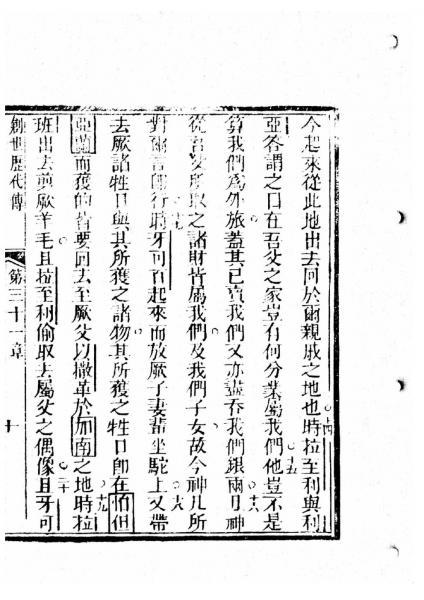 今起來從此地出去回於爾親戚之地也十四時拉至利與利
亞答謂之曰在吾父之家豈有何分業屬我們十五他豈不是
算我們為外旅蓋其已賣我們又亦盡吞我們銀兩也十六神
從吾父所取之諸財皆屬我們及我們子女故今神凡所
對爾言即行十七時牙可百起來而放厥子妻輩坐駝上十八又帶
去厥諸牲口與其所獲之諸物其所獲之牲口即在怕但
亞蘭而獲的皆要回去至厥父以撒革於加南之地十九時拉
班出去剪厥羊毛且拉至利偷取去屬父之偶像二十且牙可
創世歷代傳 第三十一章 十